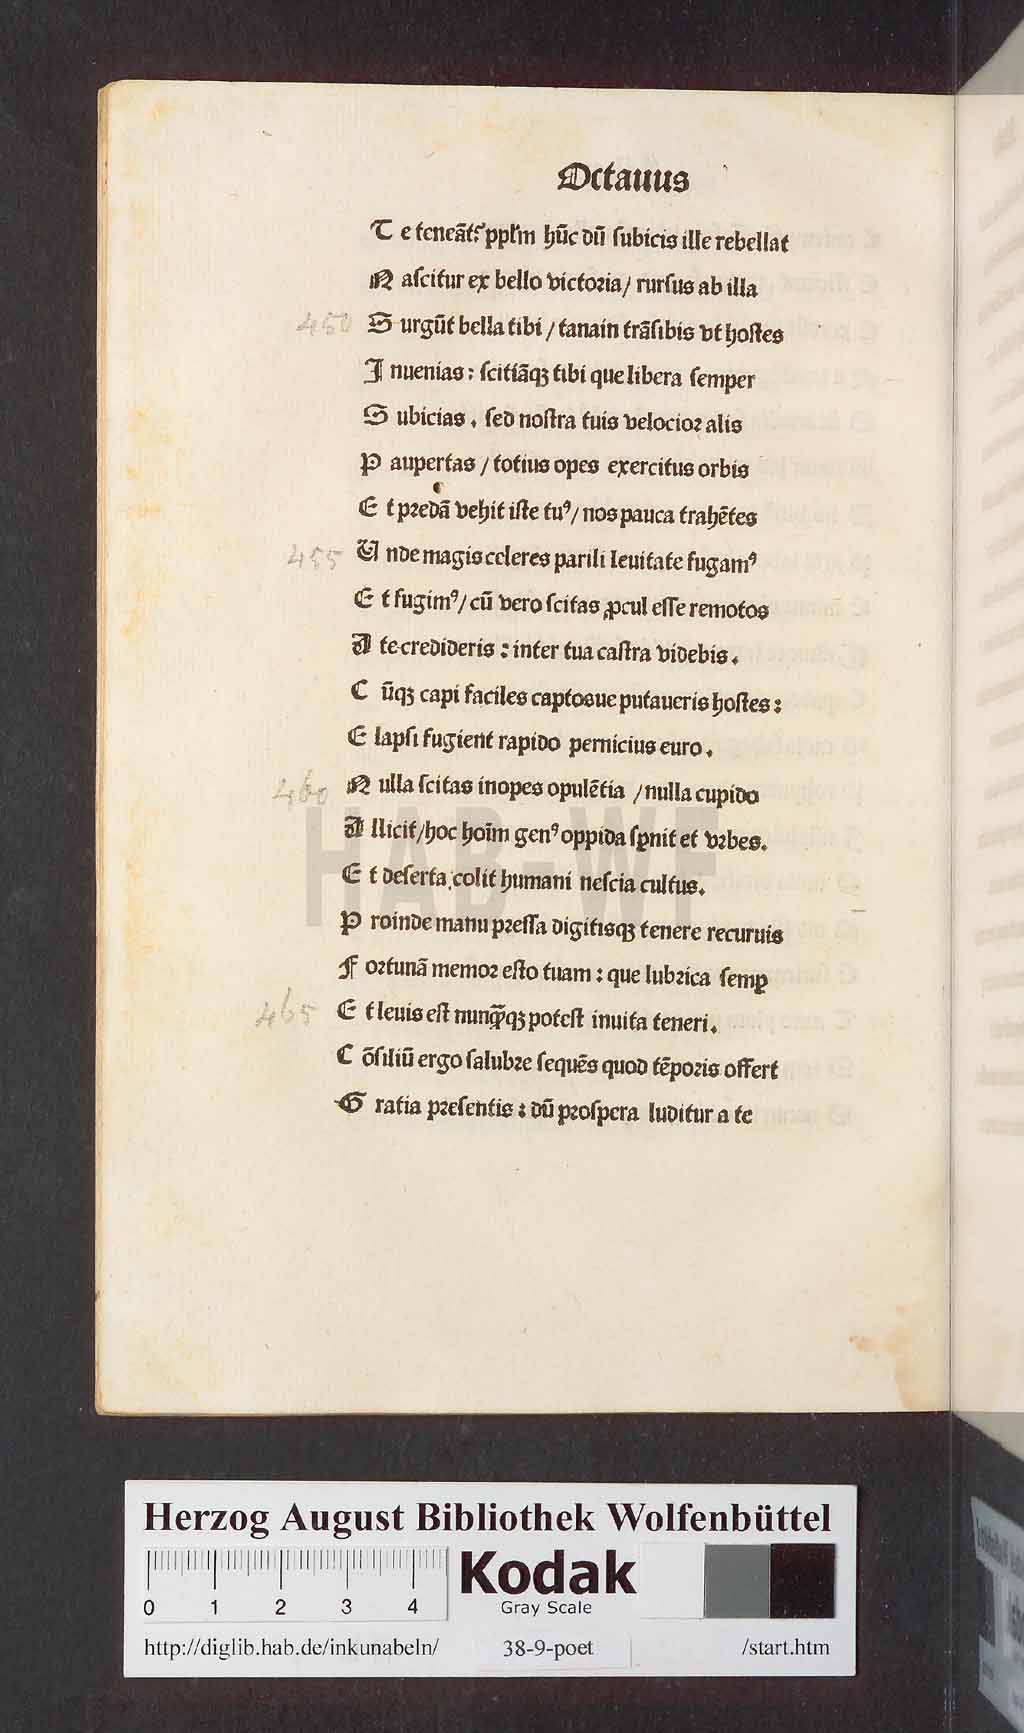 Octauus
T e teneāt: ppłm hūc dū ſubicis ille rebellat
N aſcitur ex bello victoꝛia / rurſus ab illa
450 S urgūt bella tibi / tanain trāſibis vt hoſtes
I nuenias : ſcitiāqꝫ tibi que libera ſemper
S ubicias . ſed noſtra tuis velocioꝛ alis
P aupertas / totius opes exercitus orbis
E t pꝛedā vehit iſte tuꝰ / nos pauca trahētes
455 U nde magis celeres parili leuitate fugamꝰ
E t fugimꝰ / cū vero ſcitas ꝓcul eſſe remotos
A te credideris : inter tua caſtra videbis .
C ūqꝫ capi faciles captosue putaueris hoſtes :
E lapſi fugient rapido pernicius euro .
460 N ulla ſcitas inopes opulētia / nulla cupido
A llicit / hoc hoīm genꝰ oppida ſꝑnit et vꝛbes .
E t deſerta colit humani neſcia cultus .
P roinde manu pꝛeſſa digitisqꝫ tenere recuruis
F oꝛtunā memoꝛ eſto tuam : que lubꝛica ſemꝑ
465 E t leuis eſt nunq̄ꝫ poteſt inuita teneri .
C ōſiliū ergo ſalubꝛe ſequēs quod tēpoꝛis offert
G ratia pꝛeſentis : dū pꝛoſpera luditur a te
HAB-WF
Herzog August Bibliothek Wolfenbüttel
Kodak
Gray Scale
0 1 2 3 4
http://diglib.hab.de/inkunabeln/ 38-9-poet /start.htm